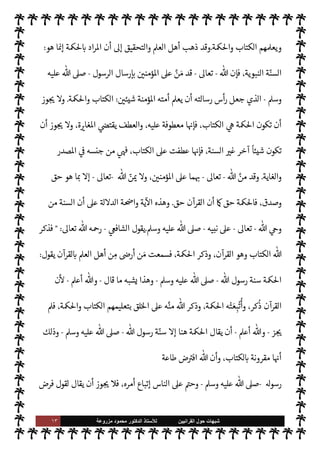 ويعلمهم الكتاب والحكمة.وقد ذهب أهل العلم والتحقيق إلى أن المراد بالحكمة إنما هو:
السنَّة النبوية. فإن الله - تعالى - قد مَنَّ على المؤمنين بإرسال الرسول - صلى الله عليه
وسلم - الذي جعل رأس رسالته أن يعلم أمته المؤمنة شيئين: الكتاب والحكمة. ولا يجوز
أن تكون الحكمة هي الكتاب، فإنها معطوفة عليه. والعطف يقتضي المغايرة، ولا يجوز أن
تكون شيئاً آخر غير السنة، فإنها عطفت على الكتاب، فهي من جنسه في المصدر
والغاية. وقد منَّ الله - تعالى - بهما على المؤمنين، ولا يمنّ الله -تعالى- إلا بما هو حق
وصدق، فالحكمة حق كما أن القرآن حق. وهذه الآية واضحة الدلالة على أن السنة من
وحي الله - تعالى - على نبيه - صلى الله عليه وسلم.يقول الشافعي - رحمه الله تعالى: " فذكر
الله الكتاب وهو القرآن، وذكر الحكمة، فسمعت مَن أرضى مِن أهل العلم بالقرآن يقول:
الحكمة سنة رسول الله - صلى الله عليه وسلم - وهذا يشبه ما قال - والله أعلم - لأن
القرآن ذُكر، وأُتْبِعَتْه الحكمة، وذكر الله منَّه على الخلق بتعليمهم الكتاب والحكمة، فلم
يجز - والله أعلم - أن يقال الحكمة هنا إلا سنَّة رسول الله - صلى الله عليه وسلم - وذلك
أنها مقرونة بالكتاب، وأن الله افترض طاعة
رسوله -صلى الله عليه وسلم - وحتم على الناس إتباع أمره، فلا يجوز أن يقال لقول فرض
شبهات حول القرآنيين للأستاذ الدكتور محمود مزروعة ١٣